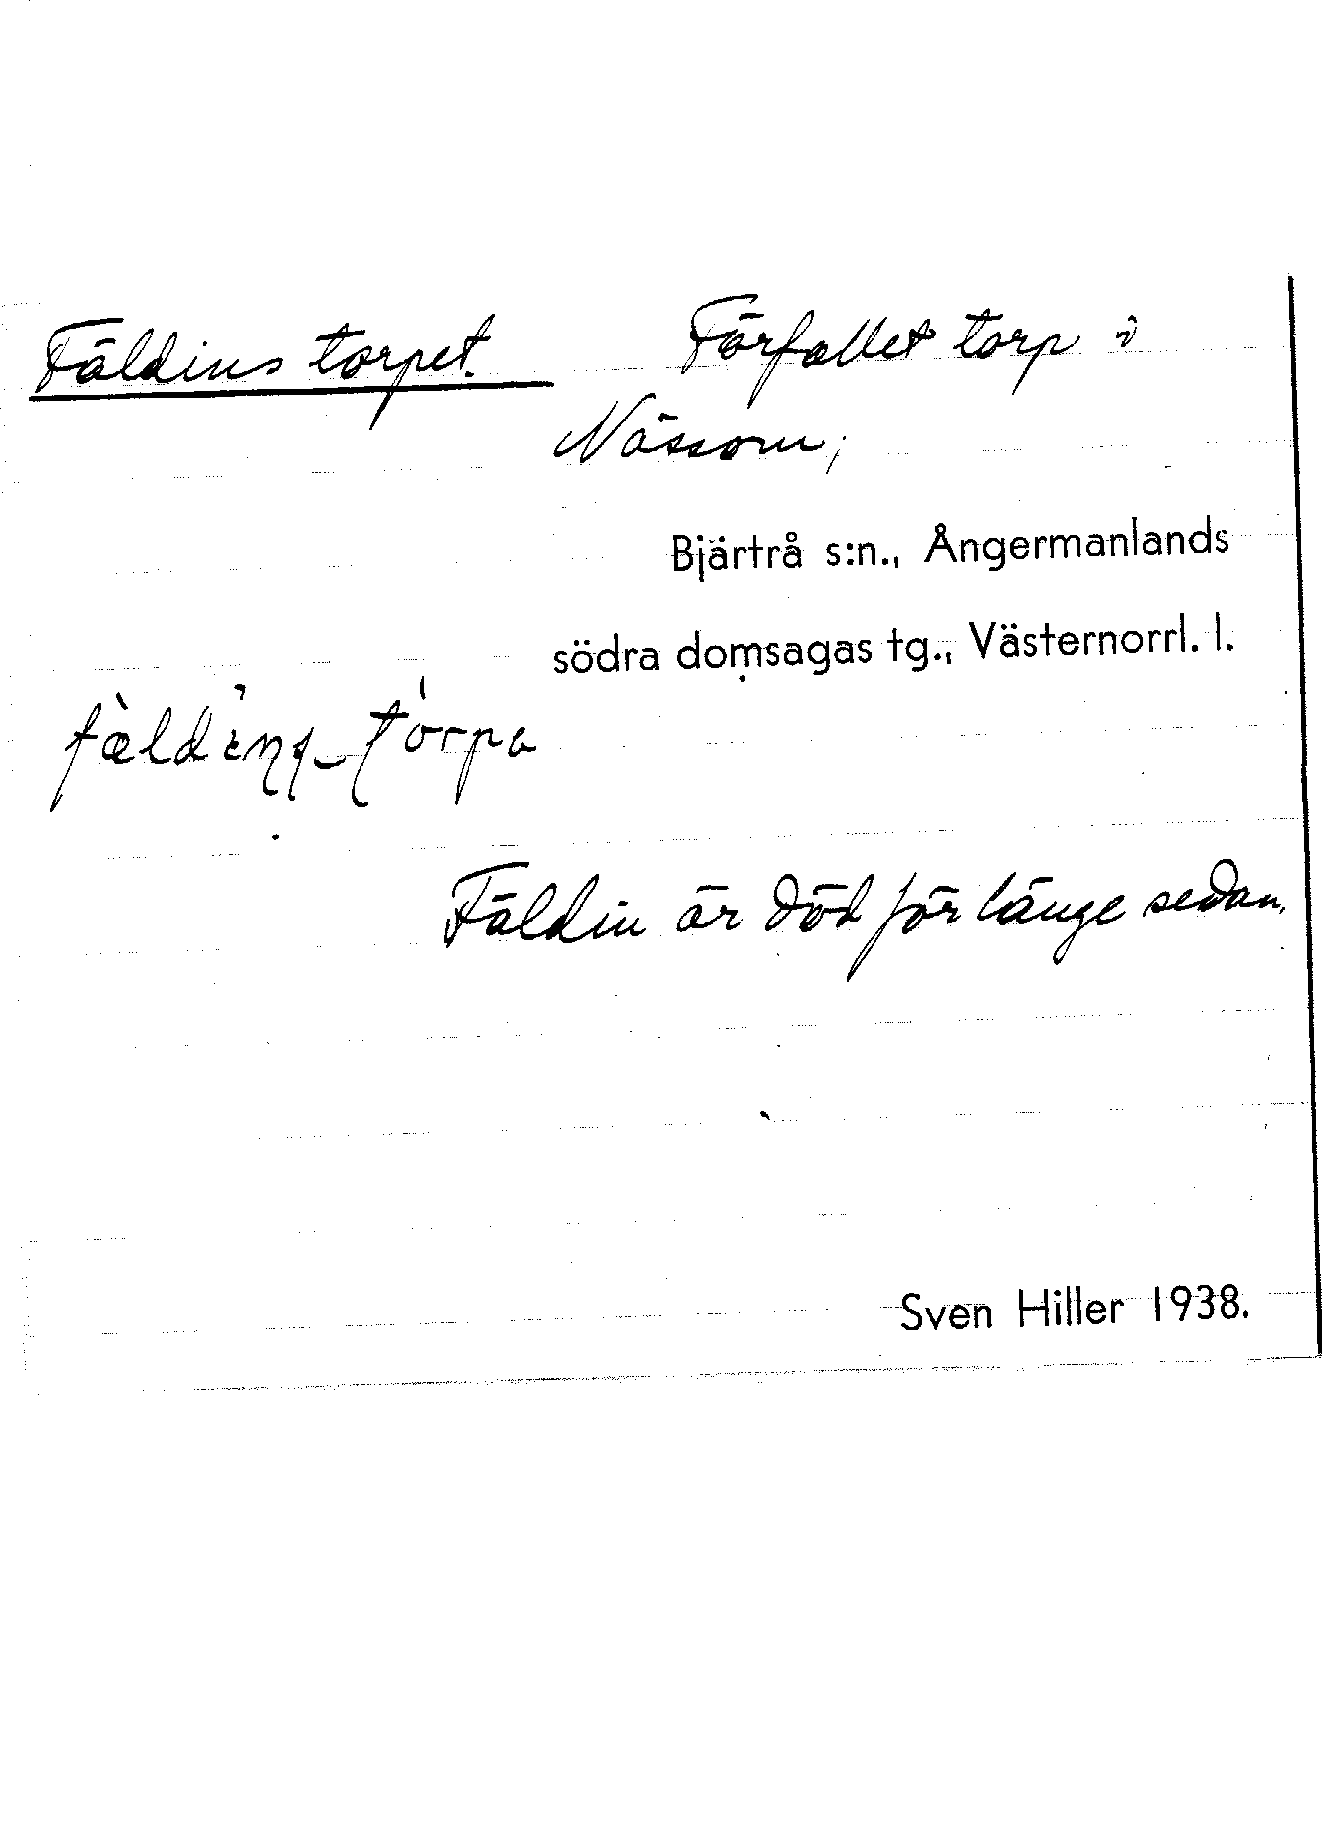 Fäldins torpet. Förfallet torp i
Nässom;
Bjärtrå s:n., Ångermanlands
södra domsagas tg., Västernorrl. l.
Fäldin är död för länge sedan.
Sven Hiller 1938.